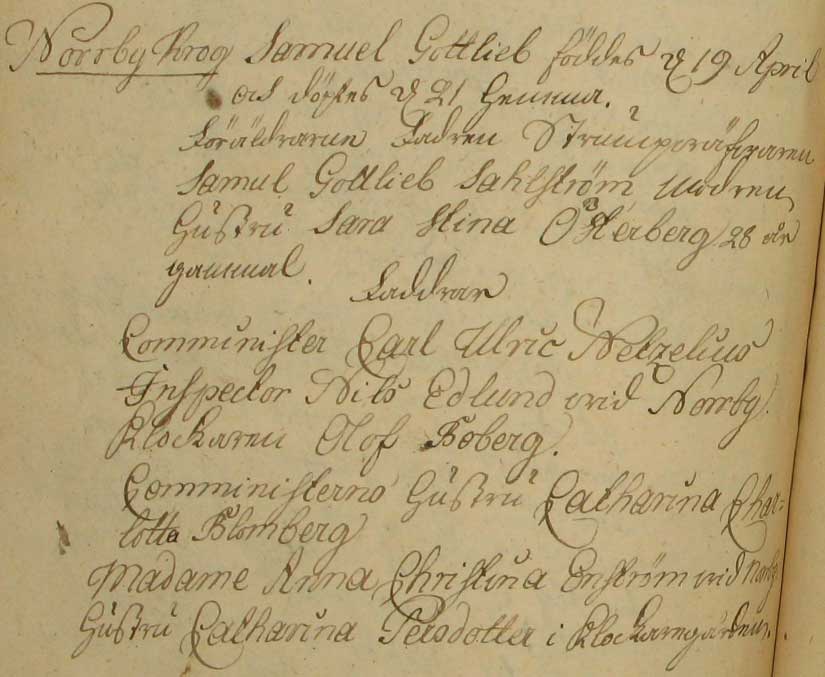 Norrby Krog Samuel Gottlieb föddes d 19 April
och döptes d 21 ejusdem.
Föräldrarne Fadren Strumpväfvaren
Samul Gottlieb Sahlström Modren
Hustru Sara Stina Österberg 28 år
gammal.
Faddrar
Comminister Carl Ulric Netzelius
Inspector Nils Edlund vid Norrby.
Klockaren Olof Boberg.
Comministerns Hustru Catharina Char-
lotta Blomberg
Madame Anna Christina Enström vid Norrby
Hustru Catharina Persdotter i Klockaregården.